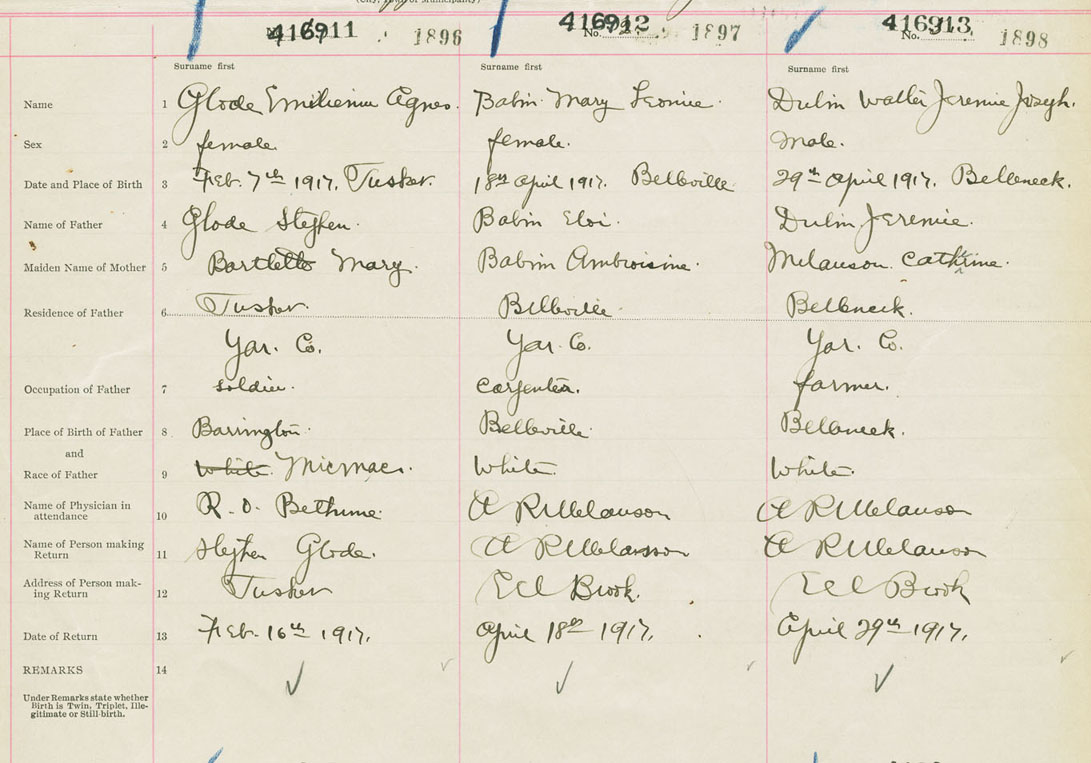 416911 1896
416912 No. 1897
416913 No. 1898
Surname first Surname first Surname first
Name 1 Glode Emilienne Agnes. Babin Mary Leonie. Dulin Walter Jeremie Joseph.
Sex 2 female. female. Male.
Date and Place of Birth 3 Feb. 7th 1917. Tusket. 18th April 1917. Belleville 29th April 1917. Belleneck.
Name of Father 4 Glode Stephen. Babin Eloi. Dulin Jeremie.
Maiden Name of Mother 5 Bartlette Mary. Babin Ambroisine. Melanson Cathrine.
Residence of Father 6 Tusket. Belleville Belleneck.
Yar. Co. Yar. Co. Yar. Co.
Occupation of Father 7 soldier. Carpenter. farmer.
Place of Birth of Father 8 Barrington. Belleville. Belleneck.
and
Race of Father 9 White. Micmac. White. White.
Name of Physician in
attendance 10 R. O. Bethune. A R Melanson A R Melanson
Name of Person making
Return 11 Stephen Glode. A R Melanson A R Melanson
Address of Person mak-
ing Return 12 Tusket Eel Brook. Eel Brook
Date of Return 13 Feb. 16th 1917. April 18th 1917. April 29th 1917.
REMARKS 14
Under Remarks state whether
Birth is Twin, Triplet, Ille-
gitimate or Still-birth.